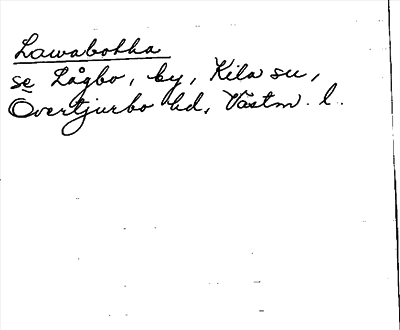 Lawabotha
se Lågbo, by, Kila sn,
Övertjurbo hd, Västm. l.